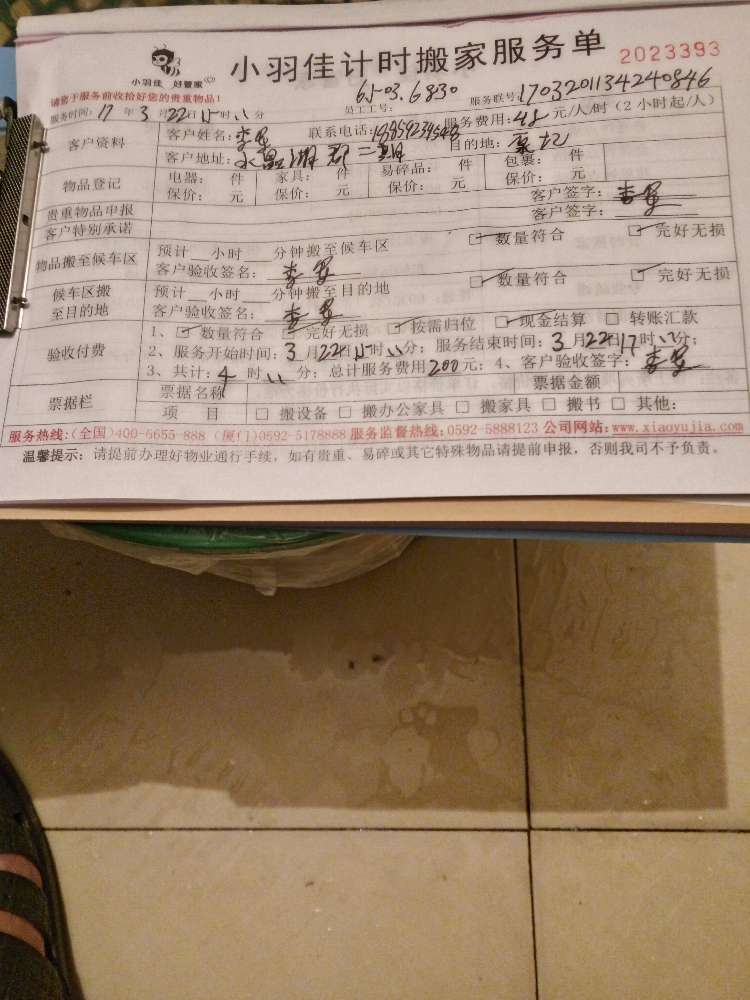 小羽佳 好管家
小羽佳计时搬家服务单 2023393
请您于服务前收拾好您的贵重物品!
服务时间: 17 年 3 月 22 日 15 时 分 员工工号: 6503.6830 服务联号: 1703201134240846
服务费用: 48 元/人/时(2小时起/人)
客户资料 客户姓名: 联系电话:
客户地址: 目的地:
物品登记 电器: 件 家具: 件 易碎品: 件 包裹: 件
保价: 元 保价: 元 保价: 元 保价: 元
贵重物品申报 客户签字:
客户特别承诺 客户签字:
物品搬至候车区 预计__小时__分钟搬至候车区 ☑ 数量符合 ☑ 完好无损
客户验收签名:
候车区搬至目的地 预计__小时__分钟搬至目的地 ☑ 数量符合 ☑ 完好无损
客户验收签名:
验收付费 1、☑ 数量符合 ☑ 完好无损 ☑ 按需归位 ☑ 现金结算 □ 转账汇款
2、服务开始时间: 3 月 22 日 15 时 分; 服务结束时间: 3 月 22 日 17 时 分;
3、共计: 4 时 分; 总计服务费用 200 元; 4、客户验收签字:
票据栏 票据名称 票据金额
项 目 □ 搬设备 □ 搬办公家具 □ 搬家具 □ 搬书 □ 其他:
服务热线:(全国)400-6655-888 (厦门)0592-5178888 服务监督热线:0592-5888123 公司网站:www.xiaoyujia.com
温馨提示: 请提前办理好物业通行手续, 如有贵重、易碎或其它特殊物品请提前申报, 否则我司不予负责。